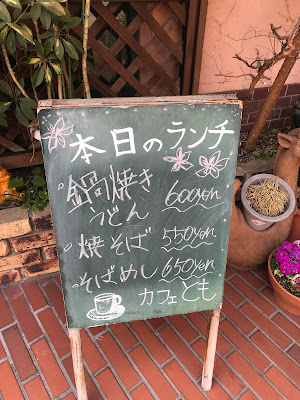 本日のランチ
・鍋焼き
うどん 600yen
・焼そば 550yen
・そばめし 650yen
カフェとも